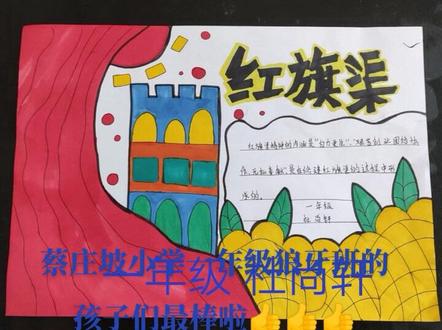 红旗渠
红旗渠精神的内涵是"自力更生"、"艰苦创业团结协
作、无私奉献",是在修建红旗渠的过程中形
成的。
一年级
杜尚轩
一年级 杜尚轩
蔡庄坡小学一年级狼牙班的
孩子们最棒啦👍👍👍